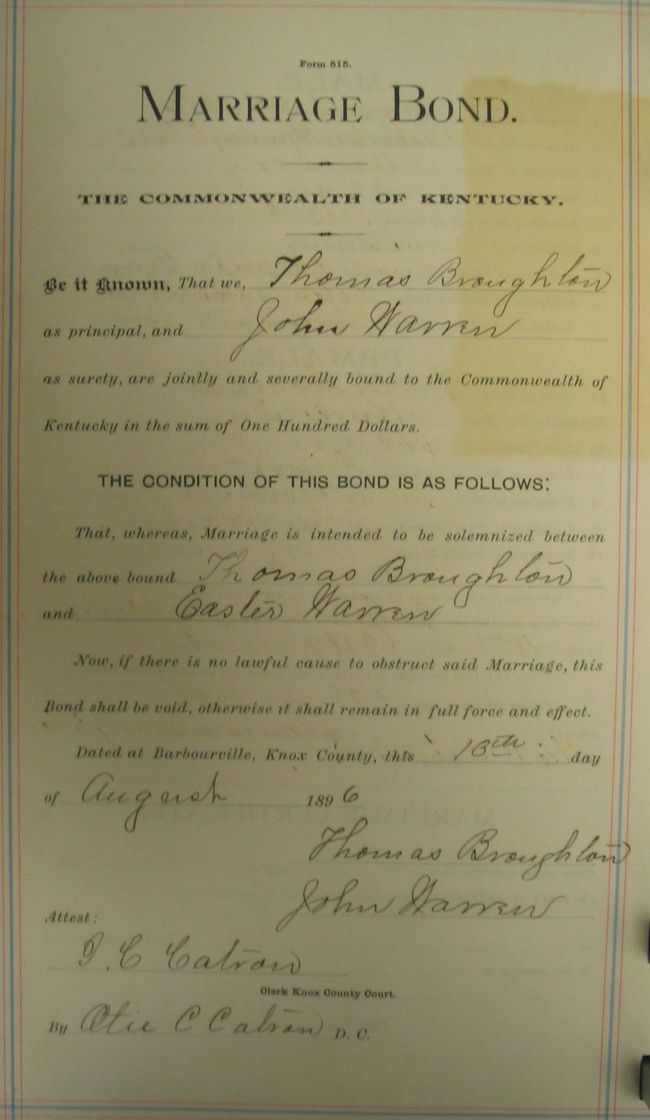 Form 515.
MARRIAGE BOND.
THE COMMONWEALTH OF KENTUCKY.
Be it Known, That we, Thomas Broughton
as principal, and John Warren
as surety, are jointly and severally bound to the Commonwealth of
Kentucky in the sum of One Hundred Dollars.
THE CONDITION OF THIS BOND IS AS FOLLOWS:
That, whereas, Marriage is intended to be solemnized between
the above bound Thomas Broughton
and Easter Warren
Now, if there is no lawful cause to obstruct said Marriage, this
Bond shall be void, otherwise it shall remain in full force and effect.
Dated at Barbourville, Knox County, this 13th day
of August 1896
Thomas Broughton
John Warren
Attest:
J. C Catron
Clerk Knox County Court.
By C Catron D. C.